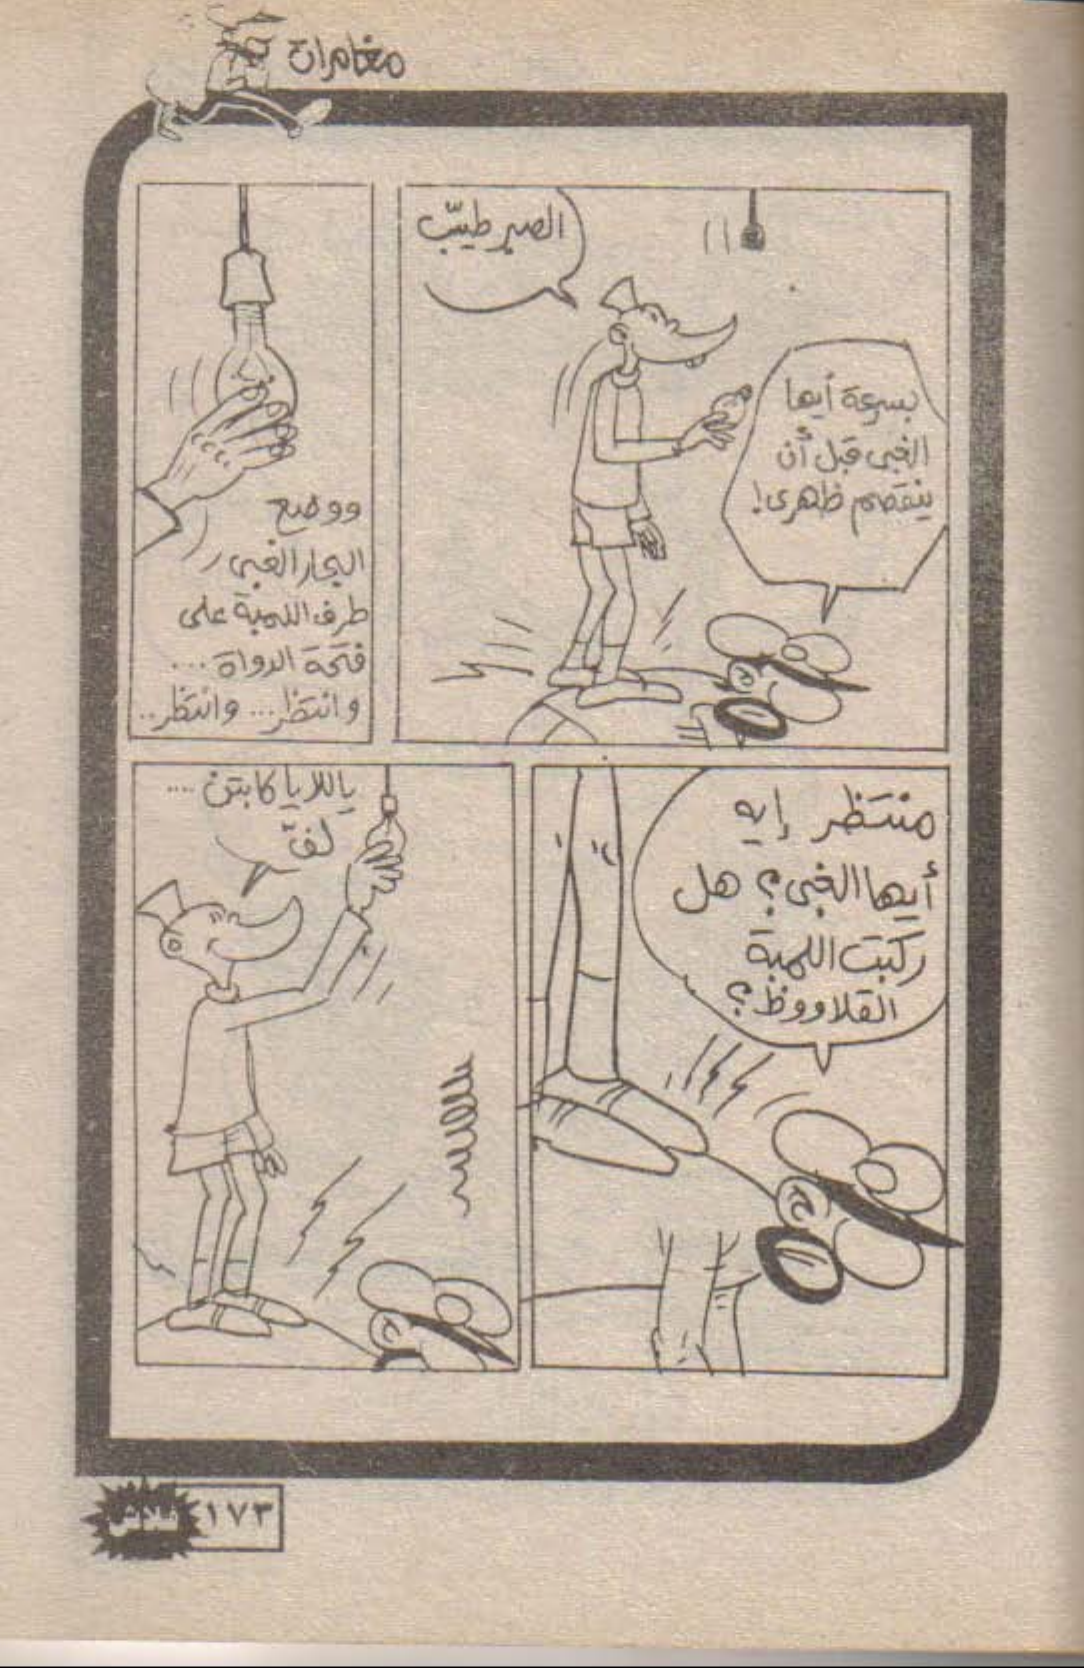 مغامرات
الصبر طيّب
بسرعة أيها
الغبى قبل أن
ينقصم ظهرى!
ووضع
البحار الغبى
طرف اللمبة على
فتحة الدواة...
وانتظر... وانتظر..
منتظر إيه
أيها الغبى؟ هل
ركبت اللمبة
القلاووظ؟
ياللا يا كابتن ....
لفّ
١٧٣
فلاش